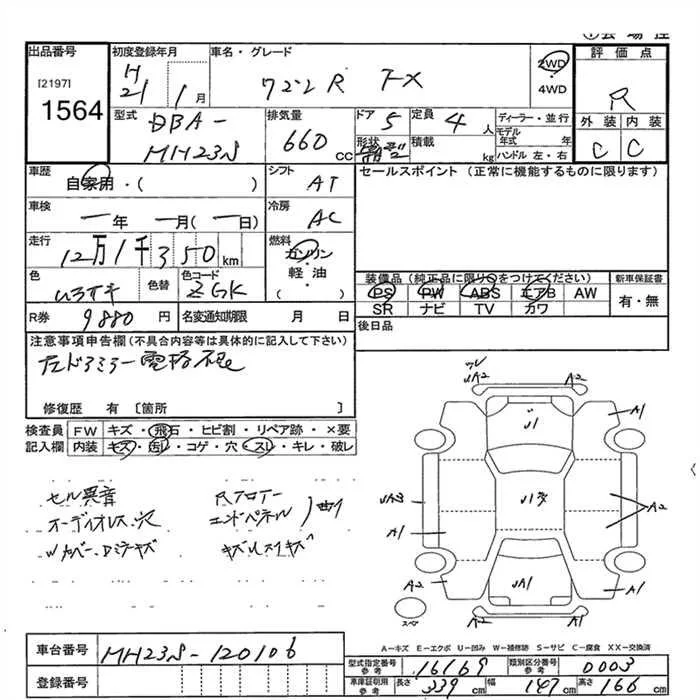 出品番号
[2197]
1564
初度登録年月
H
21 1月
車名・グレード
ワゴンR FX
2WD
4WD
評価点
R
外装 内装
C C
型式
DBA-
MH23S
排気量
660 CC
ドア 5
形状
定員 4 人
積載 kg
ディーラー・並行
モデル
年式 年
ハンドル 左・右
車歴
自家用・( )
シフト
AT
セールスポイント (正常に機能するものに限ります)
車検
一年 一月(一日)
冷房
AC
走行
12万1千350km
燃料
ガソリン
軽油
( )
色
色替
色コード
ZGK
装備品 (純正品に限り○をつけてください)
PS PW ABS エアB AW
SR ナビ TV カワ
新車保証書
有・無
R券 9880 円
名変通知期限 月 日
後日品
注意事項申告欄(不具合内容等は具体的に記入して下さい)
左ドアミラー電格不良
修復歴 有〔箇所 〕
検査員 FW キズ・飛石・ヒビ割・リペア跡・×要
記入欄 内装 キズ・汚レ・コゲ・穴・スレ・キレ・破レ
セル異音
オーディオレス、穴
Rフロアー
エンドパネル
曲り
ワレ
UA2 A2
U1 A1
UA3 A2
A1
A2 UA1 A1
A2 A2
スペ
A－キズ E－エクボ U－凹み W－補修跡 S－サビ C－腐食 XX－交換済
車台番号 MH23S-120106
登録番号
型式指定番号
参考 16169
類別区分番号
参考 0003
車庫証明用
参考 長さ 339 cm 幅 147 cm 高さ 166 cm